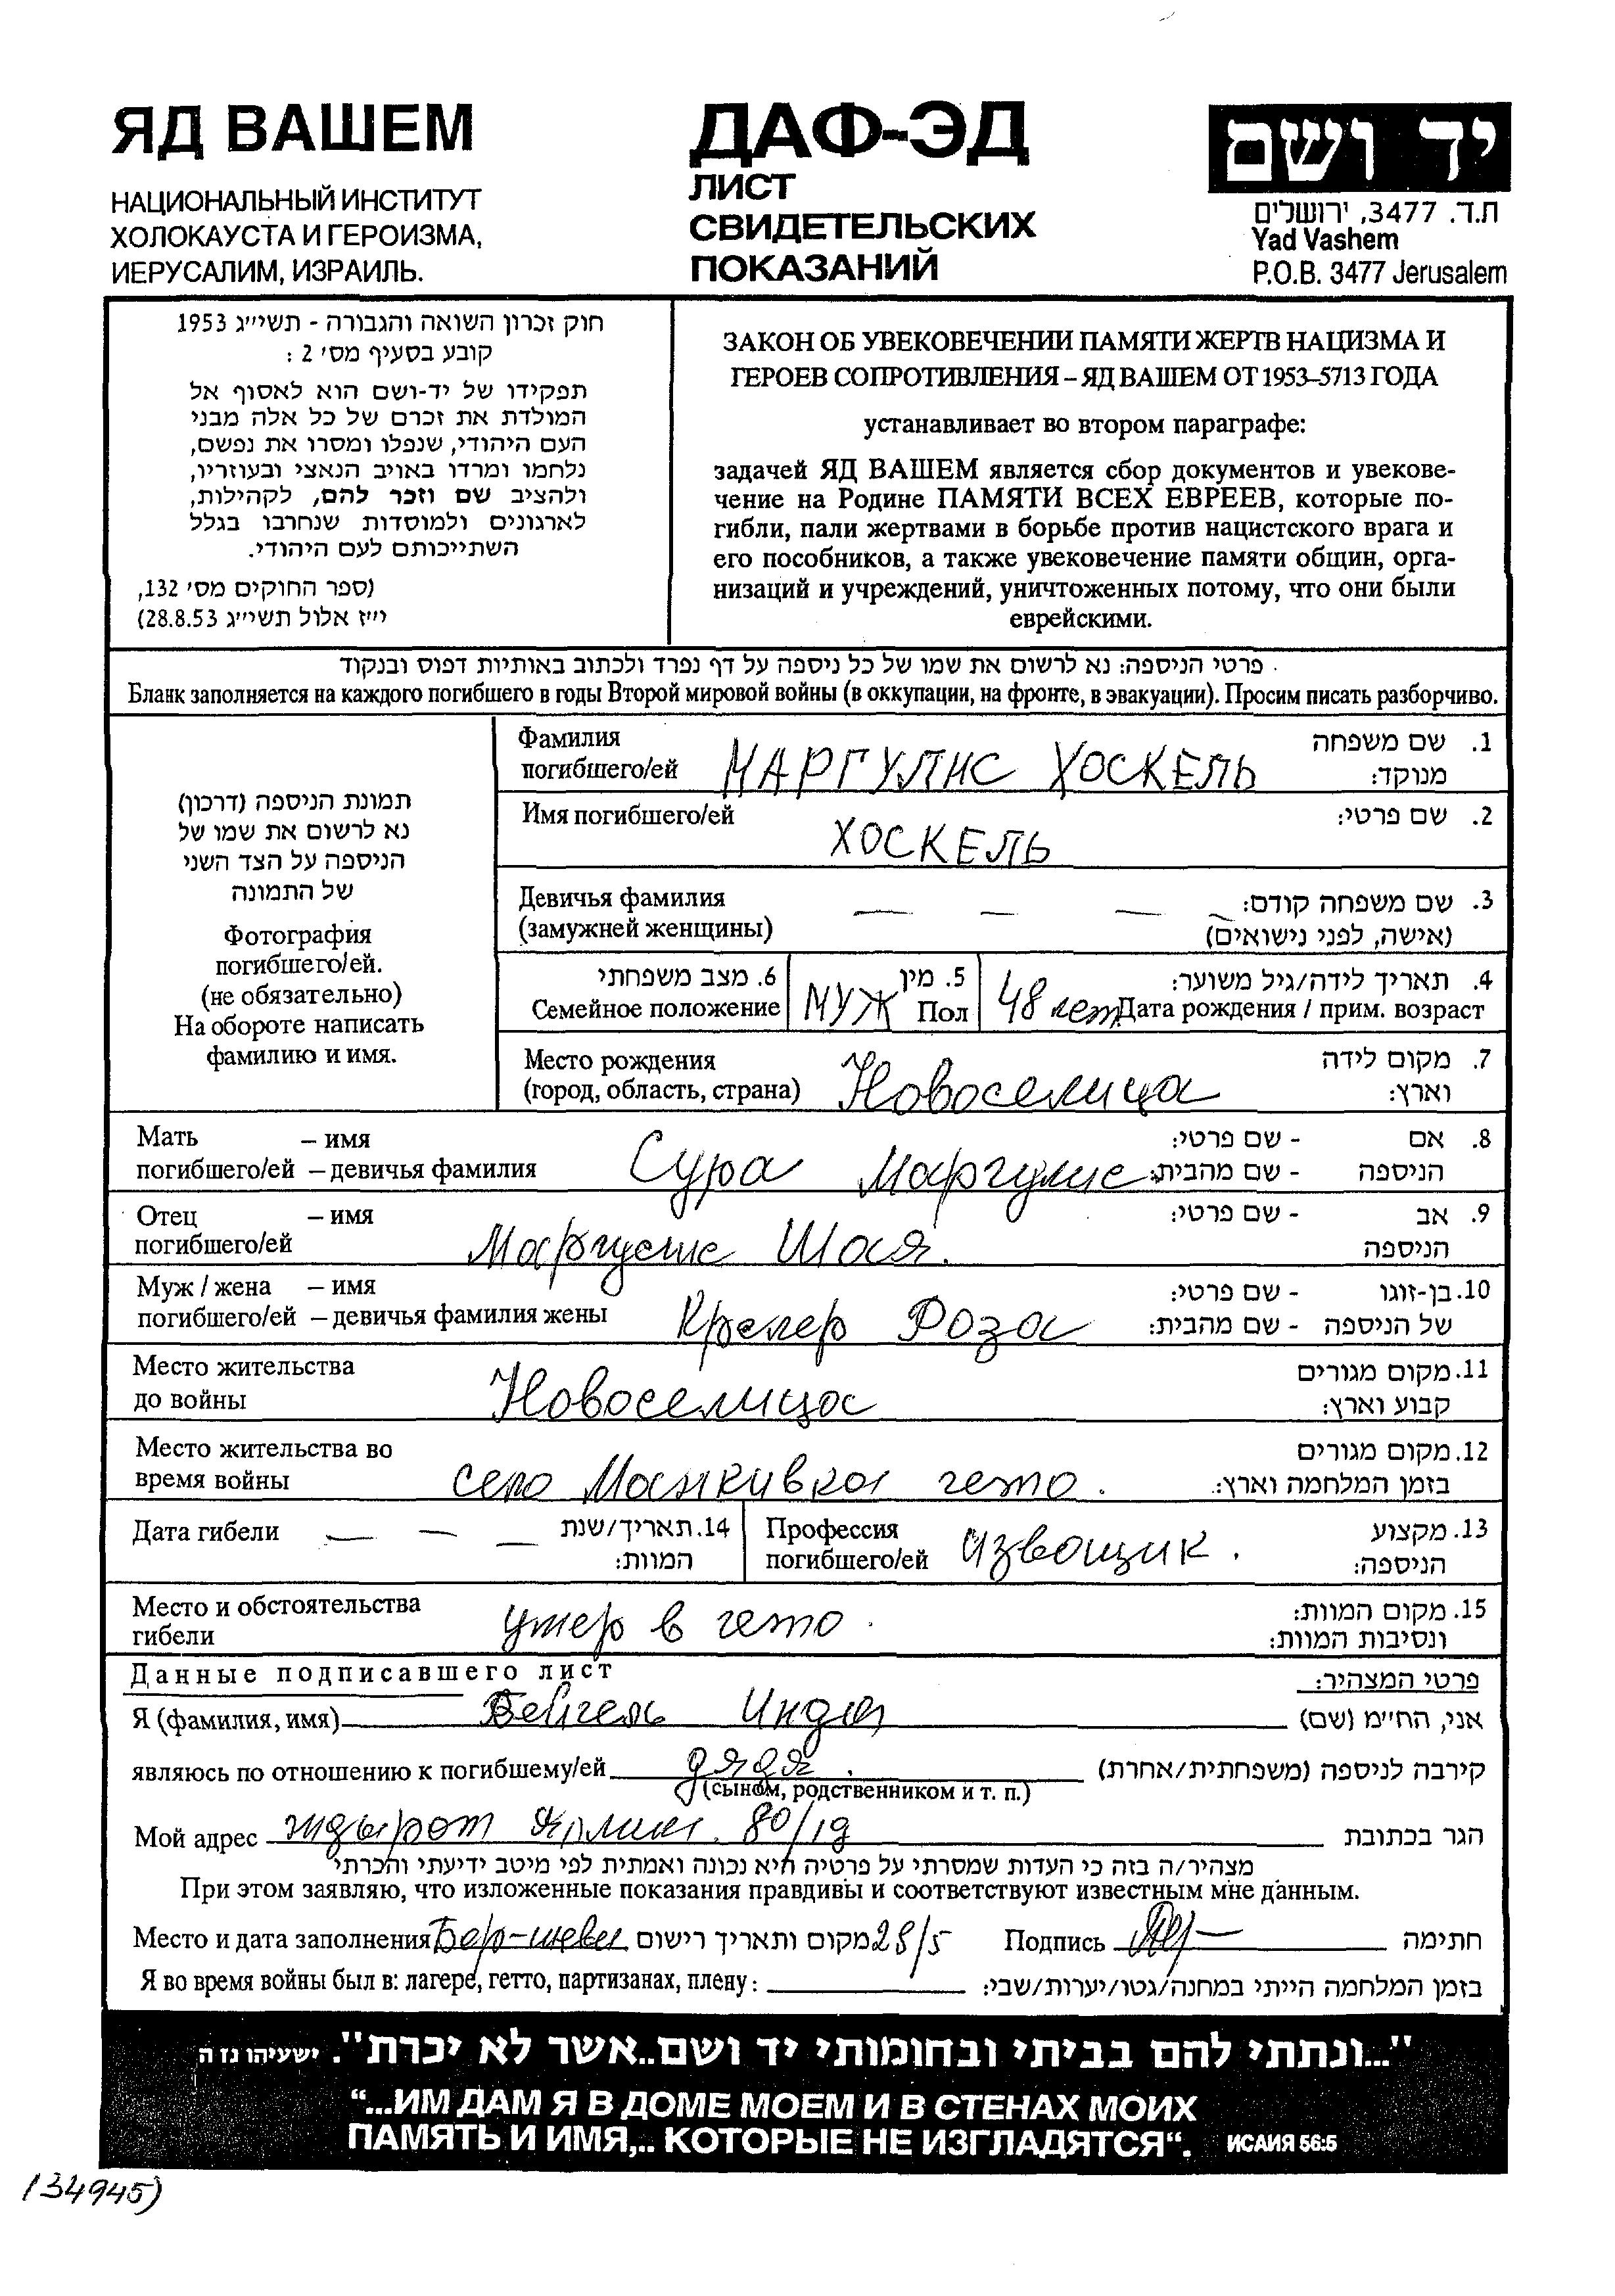 ЯД ВАШЕМ
НАЦИОНАЛЬНЫЙ ИНСТИТУТ
ХОЛОКАУСТА И ГЕРОИЗМА,
ИЕРУСАЛИМ, ИЗРАИЛЬ.
ДАФ-ЭД
ЛИСТ
СВИДЕТЕЛЬСКИХ
ПОКАЗАНИЙ
יד ושם
ת.ד. 3477, ירושלים
Yad Vashem
P.O.B. 3477 Jerusalem
חוק זכרון השואה והגבורה - תשי״ג 1953
קובע בסעיף מס׳ 2 :
תפקידו של יד-ושם הוא לאסוף אל
המולדת את זכרם של כל אלה מבני
העם היהודי, שנפלו ומסרו את נפשם,
נלחמו ומרדו באויב הנאצי ובעוזריו,
ולהציב שם וזכר להם, לקהילות,
לארגונים ולמוסדות שנחרבו בגלל
השתייכותם לעם היהודי.
(ספר החוקים מס׳ 132,
י״ז אלול תשי״ג 28.8.53)
ЗАКОН ОБ УВЕКОВЕЧЕНИИ ПАМЯТИ ЖЕРТВ НАЦИЗМА И
ГЕРОЕВ СОПРОТИВЛЕНИЯ – ЯД ВАШЕМ ОТ 1953–5713 ГОДА
устанавливает во втором параграфе:
задачей ЯД ВАШЕМ является сбор документов и увекове-
чение на Родине ПАМЯТИ ВСЕХ ЕВРЕЕВ, которые по-
гибли, пали жертвами в борьбе против нацистского врага и
его пособников, а также увековечение памяти общин, орга-
низаций и учреждений, уничтоженных потому, что они были
еврейскими.
פרטי הניספה: נא לרשום את שמו של כל ניספה על דף נפרד ולכתוב באותיות דפוס ובנקוד
Бланк заполняется на каждого погибшего в годы Второй мировой войны (в оккупации, на фронте, в эвакуации). Просим писать разборчиво.
תמונת הניספה (דרכון)
נא לרשום את שמו של
הניספה על הצד השני
של התמונה
Фотография
погибшего/ей.
(не обязательно)
На обороте написать
фамилию и имя.
Фамилия שם משפחה .1
погибшего/ей МАРГУЛИС ХОСКЕЛЬ מנוקד:
Имя погибшего/ей שם פרטי: .2
ХОСКЕЛЬ
Девичья фамилия — — — — שם משפחה קודם: .3
(замужней женщины) (אישה, לפני נישואים)
6. מצב משפחתי 5. מין תאריך לידה/גיל משוער: .4
Семейное положение МУЖ Пол 48 лет Дата рождения / прим. возраст
Место рождения מקום לידה .7
(город, область, страна) Новоселица וארץ:
Мать – имя - שם פרטי: אם .8
погибшего/ей – девичья фамилия Сура Маргулис - שם מהבית: הניספה
Отец – имя - שם פרטי: אב .9
погибшего/ей Маргулис Шая. הניספה
Муж / жена – имя - שם פרטי: 10. בן-זוגו
погибшего/ей – девичья фамилия жены Крелер Роза - שם מהבית: של הניספה
Место жительства 11. מקום מגורים
до войны Новоселица קבוע וארץ:
Место жительства во 12. מקום מגורים
время войны село Манкивка гето. בזמן המלחמה וארץ:
Дата гибели — — — 14. תאריך/שנת
המוות:
Профессия 13. מקצוע
погибшего/ей извощик. הניספה:
Место и обстоятельства 15. מקום המוות:
гибели умер в гето. ונסיבות המוות:
Данные подписавшего лист פרטי המצהיר:
Я (фамилия, имя) Вейгель Инда אני, החי״מ (שם)
являюсь по отношению к погибшему/ей дядя. קירבה לניספה (משפחתית/אחרת)
(сыном, родственником и т. п.)
Мой адрес 80/19 הגר בכתובת
מצהיר/ה בזה כי העדות שמסרתי על פרטיה היא נכונה ואמתית לפי מיטב ידיעתי והכרתי
При этом заявляю, что изложенные показания правдивы и соответствуют известным мне данным.
Место и дата заполнения Бер-шеви מקום ותאריך רישום 28/5 Подпись חתימה
Я во время войны был в: лагере, гетто, партизанах, плену: בזמן המלחמה הייתי במחנה/גטו/יערות/שבי:
"...ונתתי להם בביתי ובחומותי יד ושם..אשר לא יכרת". ישעיהו נז ה
“...ИМ ДАМ Я В ДОМЕ МОЕМ И В СТЕНАХ МОИХ
ПАМЯТЬ И ИМЯ,.. КОТОРЫЕ НЕ ИЗГЛАДЯТСЯ“. ИСАИЯ 56:5
134945)